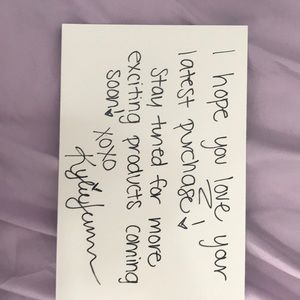 I hope you love your
latest purchase!
Stay tuned for more
exciting products coming
soon!
XOXO
Kylie Jenner